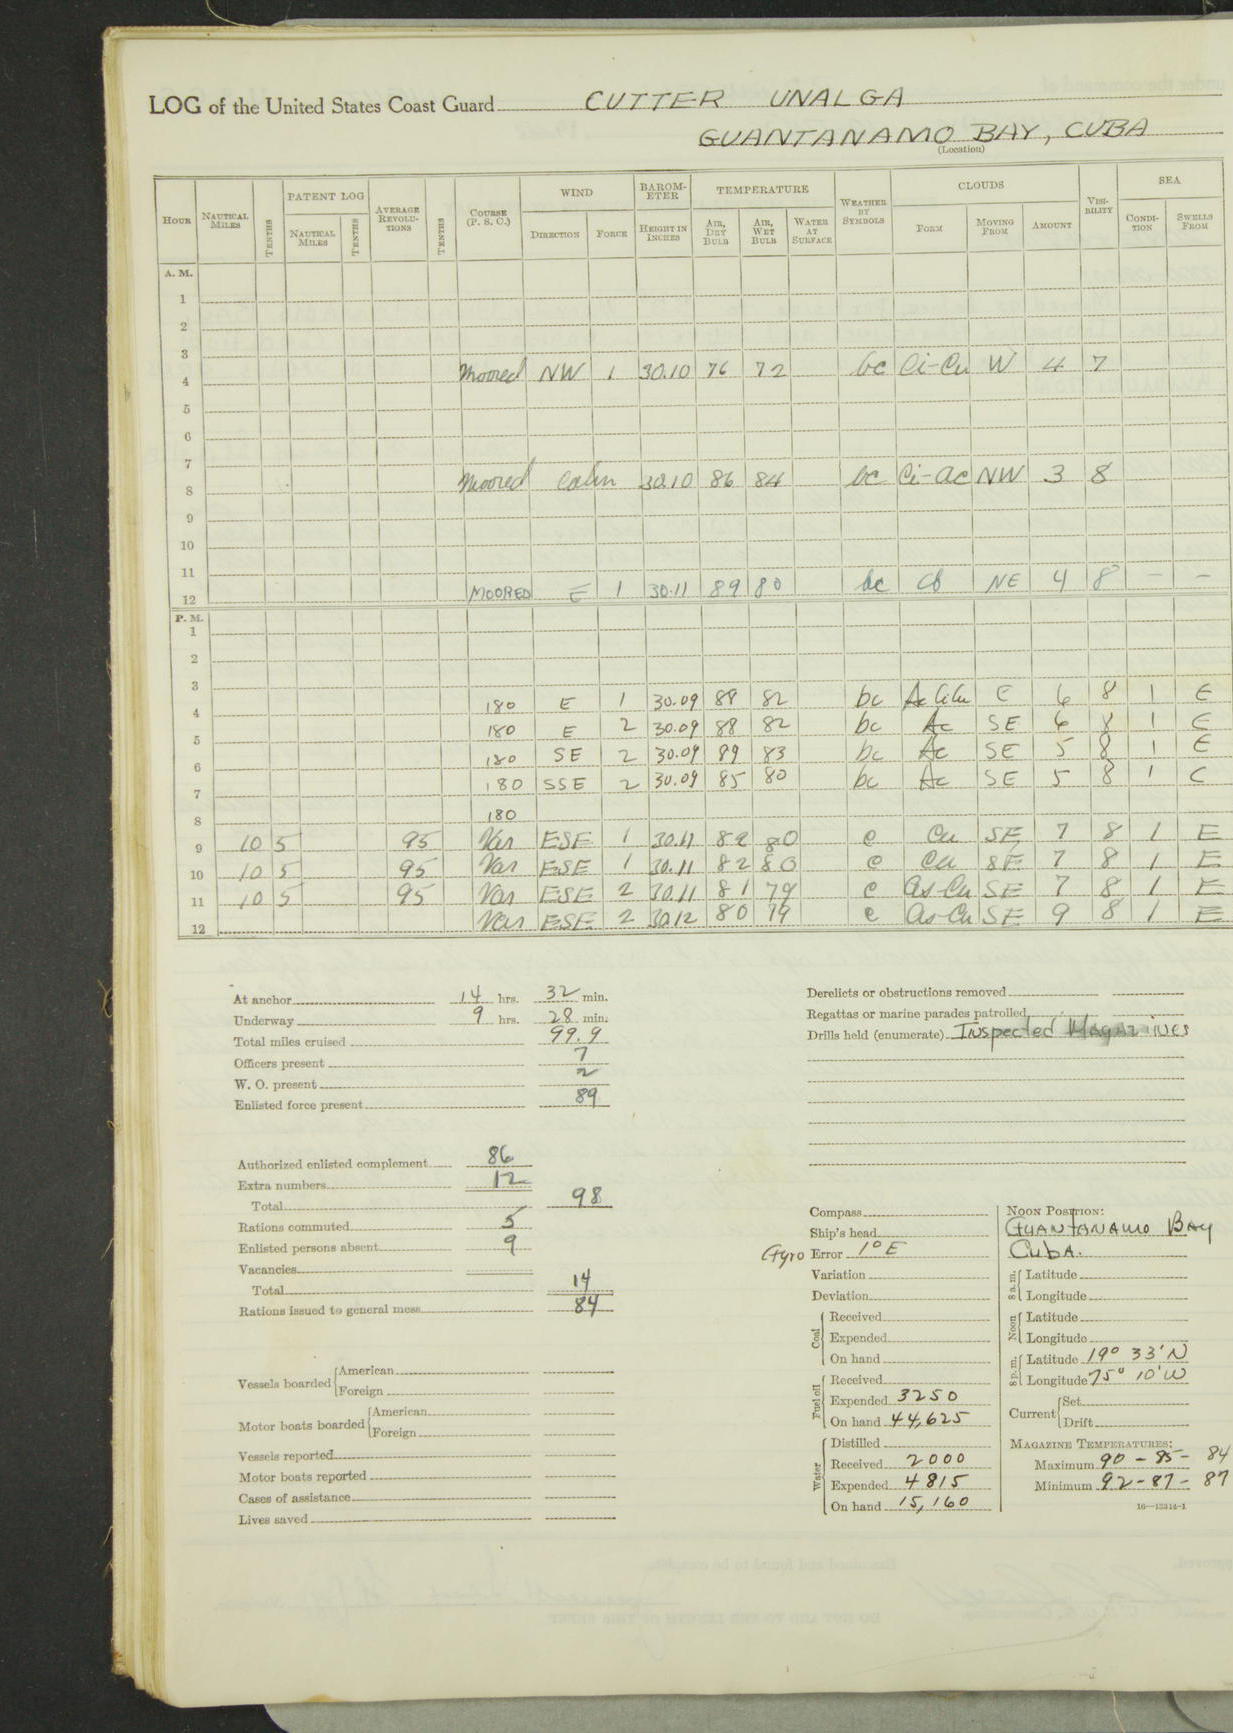 LOG of the United States Coast Guard CUTTER UNALGA
GUANTANAMO BAY, CUBA
(Location)
HOUR NAUTICAL MILES TENTHS PATENT LOG NAUTICAL MILES TENTHS AVERAGE REVOLUTIONS TENTHS COURSE (P. S. C.) WIND DIRECTION FORCE BAROMETER HEIGHT IN INCHES TEMPERATURE AIR, DRY BULB AIR, WET BULB WATER AT SURFACE WEATHER BY SYMBOLS CLOUDS FORM MOVING FROM AMOUNT VISIBILITY SEA CONDITION SWELLS FROM
A. M.
1
2
3
4 Moored NW 1 30.10 76 72 bc Ci-Cu W 4 7
5
6
7
8 Moored Calm 30.10 86 84 bc Ci-Ac NW 3 8
9
10
11
12 MOORED E 1 30.11 89 80 bc Cb NE 4 8 - -
P. M.
1
2
3
4 180 E 1 30.09 88 82 bc Ac CiCu E 6 8 1 E
5 180 E 2 30.09 88 82 bc Ac SE 6 8 1 E
6 180 SE 2 30.09 89 83 bc Ac SE 5 8 1 E
7 180 SSE 2 30.09 85 80 bc Ac SE 5 8 1 E
8 180
9 10 5 95 Var ESE 1 30.11 82 80 c Cu SE 7 8 1 E
10 10 5 95 Var ESE 1 30.11 82 80 c Cu SE 7 8 1 E
11 10 5 95 Var ESE 2 30.11 81 79 c As-Cu SE 7 8 1 E
12 Var ESE 2 30.12 80 79 c As-Cu SE 9 8 1 E
At anchor 14 hrs. 32 min.
Underway 9 hrs. 28 min.
Total miles cruised 99.9
Officers present 7
W. O. present 2
Enlisted force present 89
Authorized enlisted complement 86
Extra numbers 12
Total 98
Rations commuted 5
Enlisted persons absent 9
Vacancies
Total 14
Rations issued to general mess 84
Vessels boarded American
Foreign
Motor boats boarded American
Foreign
Vessels reported
Motor boats reported
Cases of assistance
Lives saved
Derelicts or obstructions removed
Regattas or marine parades patrolled
Drills held (enumerate) Inspected Magazines
Compass
Ship's head
Gyro Error 1° E
Variation
Deviation
Coal Received
Expended
On hand
Fuel oil Received
Expended 3250
On hand 44,625
Water Distilled
Received 2000
Expended 4815
On hand 15,160
NOON POSITION:
GUANTANAMO BAY
CUBA.
8 a.m. Latitude
Longitude
Noon Latitude
Longitude
8 p.m. Latitude 19° 33' N
Longitude 75° 10' W
Current Set
Drift
MAGAZINE TEMPERATURES:
Maximum 90 - 85 - 84
Minimum 92 - 87 - 87
16—12314-1